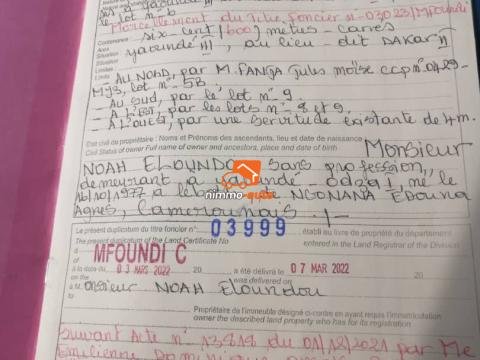 le lot n° 5b
Morcellement du Titre Foncier n° 03023/Mfoundi
Contenance
Six-cent (600) metres-carrés
Situation
Yaoundé III, au lieu-dit DAKAR II
Limites :
Limits
- Au Nord, par M. FANGA Jules Moïse
lot n° 5B.
- Au Sud, par le lot n° 9.
- A l'Est, par les lots n° 8 et 9,
- A l'Ouest, par une servitude existante de 4m.
Etat civil de propriétaire : Noms et Prénoms des ascendants, lieu et date de naissance
Civil Status of owner Full name of owner and ancestors, place and date of birth
Monsieur
NOAH ELOUNDOU, Sans profession,
demeurant à Yaoundé
16/10/1977 à NGONANA EDOUNA
Agnes, Camerounais. /-
nimmo
Le présent duplicatum du titre foncier n° 03999 établi au livre de propriété du département
The present duplicatum of the Land Certificate No entered in the Land Registrar of the Division
MFOUNDI C
à la date du 03 MARS 2022 20 a été délivré le 07 MAR 2022
was delivered on
à M. Monsieur NOAH Eloundou
to
Propriétaire de l'immeuble désigné ci-contre en ayant requis l'immatriculation
owner the described land property who has for its registration
Suivant Acte n° 13818 du 01/12/2021 par Me